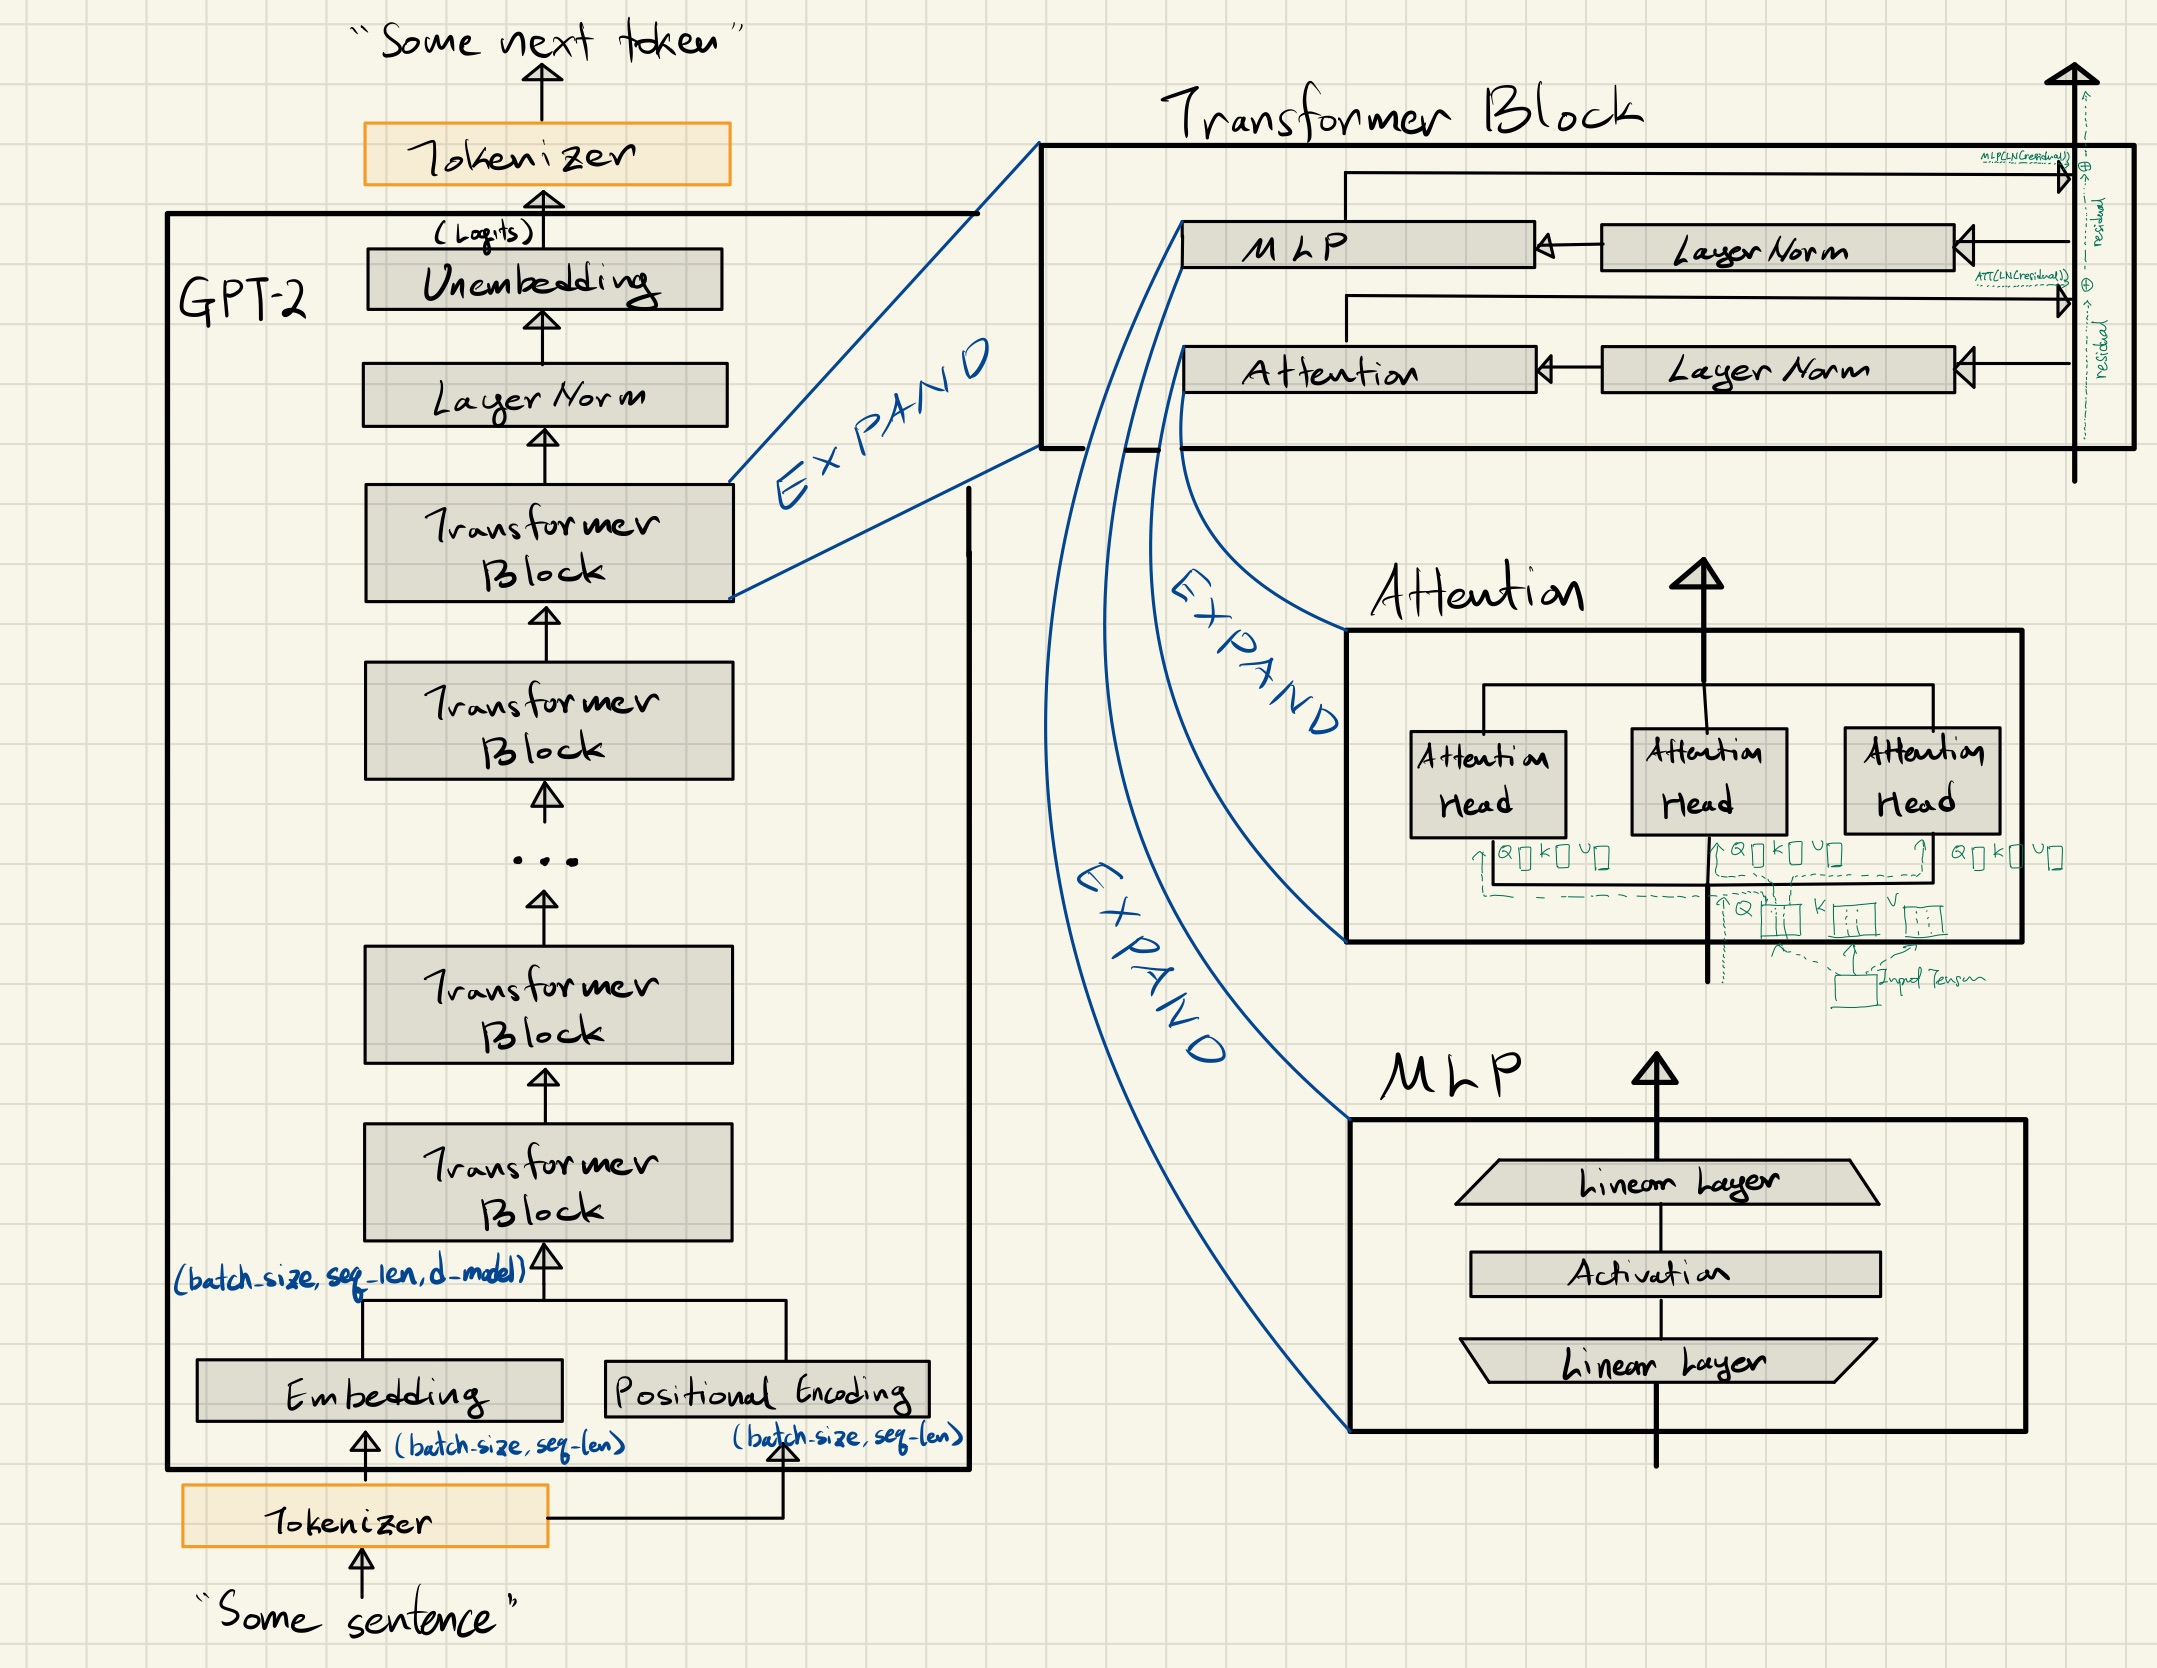 "Some next token"
Tokenizer
(Logits)
Unembedding
GPT-2
Layer Norm
Transformer
Block
Transformer
Block
...
Transformer
Block
Transformer
Block
(batch_size, seq_len, d_model)
Embedding
Positional Encoding
(batch_size, seq_len)
(batch_size, seq_len)
Tokenizer
"Some sentence"
EXPAND
Transformer Block
MLP(LN(residual))
MLP
Layer Norm
residual
ATT(LN(residual))
Attention
Layer Norm
residual
EXPAND
Attention
Attention
Head
Attention
Head
Attention
Head
Q K V
Q K V
Q K V
Q K V
Input Tensor
EXPAND
MLP
Linear Layer
Activation
Linear Layer